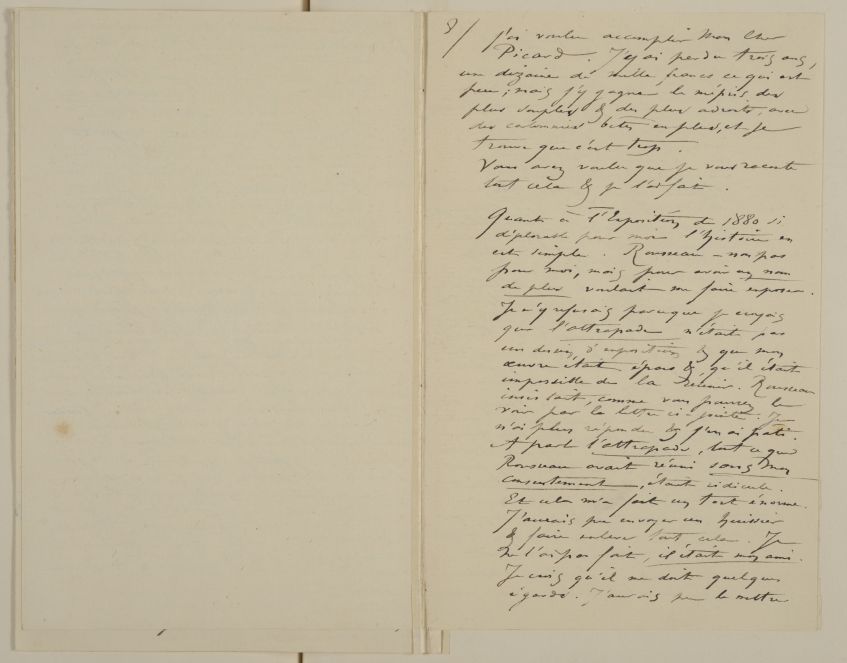 8/
j'ai voulu accomplir mon cher
Picard. J'y ai perdu trois ans,
une dizaine de mille francs ce qui est
peu; mais j'y gagne le mépris des
plus souples & des plus adroits, avec
des calomnies bêtes en plus, et je
trouve que c'est trop.
Vous avez voulu que je vous raconte
tout cela & je l'ai fait.
Quant à l'Exposition de 1880 si
déplorable pour moi l'histoire en
est simple. Rousseau – non pas
pour moi, mais pour avoir un nom
de plus voulait me faire exposer.
Je m'y refusais parce que je croyais
que l'attrapade n'était pas
un dessin d'exposition & que mon
œuvre était épars & qu'il était
impossible de la réunir. Rousseau
insistait, comme vous pourrez le
voir par la lettre ci-jointe. Je
n'ai plus répondu & j'en ai pâti.
A part l'attrapade, tout ce que
Rousseau avait réuni sans mon
consentement, était ridicule.
Et cela m'a fait un tort énorme.
J'aurais pu envoyer un huissier
& faire enlever tout cela. Je
ne l'ai pas fait, il était mon ami.
Je crois qu'il me doit quelques
égards. J'aurais pu le mettre